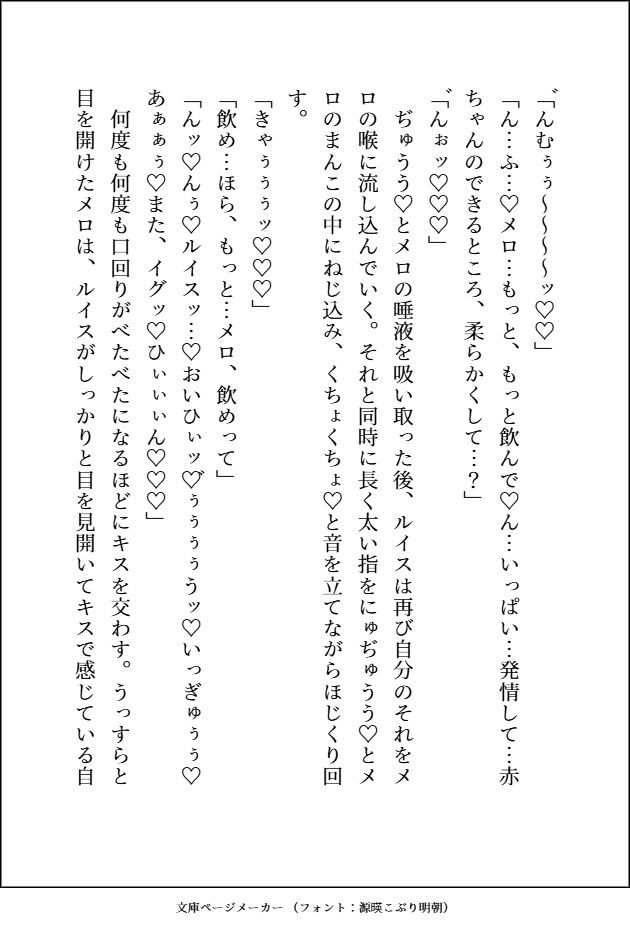 「゛んむぅぅ〜〜〜〜ッ♡♡」
「ん…ふ…♡メロ…もっと、もっと飲んで♡ん…いっぱい…発情して…赤
ちゃんのできるところ、柔らかくして…？」
「゛んぉッ♡♡♡」
　ぢゅうう♡とメロの唾液を吸い取った後、ルイスは再び自分のそれをメ
ロの喉に流し込んでいく。それと同時に長く太い指をにゅぢゅうう♡とメ
ロのまんこの中にねじ込み、くちょくちょ♡と音を立てながらほじくり回
す。
「きゃぅぅぅッ♡♡♡」
「飲め…ほら、もっと…メロ、飲めって」
「んッ♡んぅ♡ルイスッ…♡おいひぃッ♡゛ぅぅぅぅうッ♡いっぎゅぅぅ♡
あぁぁぅ♡また、イグッ♡ひぃぃぃん♡♡♡」
　何度も何度も口回りがべたべたになるほどにキスを交わす。うっすらと
目を開けたメロは、ルイスがしっかりと目を見開いてキスで感じている自
文庫ページメーカー（フォント：源暎こぶり明朝）